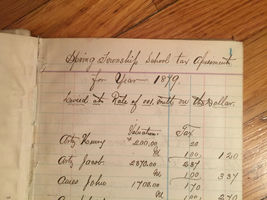 Spring Township School tax Assessments
for Year 1899
Levied at Rate of one mill on the Dollar.
Valuation Tax
Henry 200.00 20
M 1.00 1 20
Jacob 2370.00 2 37
M 1.00 3 37
Ames John 1700.00 1 70
M 1.00 2 70